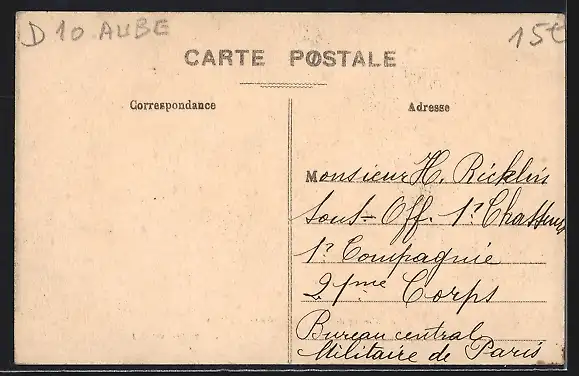 D 10 AUBE
15€
CARTE POSTALE
Correspondance
Adresse
Monsieur H. Ricklin
Sous-Off. 1? Chasseurs
1? Compagnie
21me Corps
Bureau central
Militaire de Paris